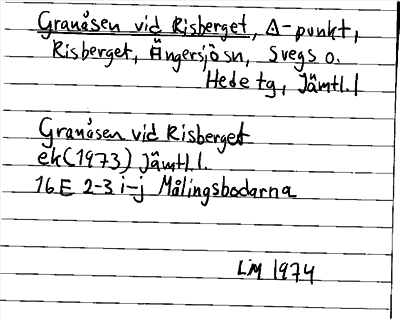 Granåsen vid Risberget, Δ-punkt,
Risberget, Ängersjö sn, Svegs o.
Hede tg, Jämtl. l
Granåsen vid Risberget
ek (1973) Jämtl. l.
16E 2-3 i-j Målingsbodarna
LiM 1974